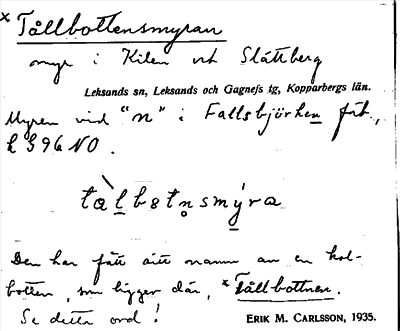 × Tållbottensmyran
myr i Kilen och Slättberg
Leksands sn, Leksands och Gagnefs tg, Kopparbergs län.
Myren vid "n" i Fallsbjörken fäb.,
k S 96 NO.
tàl̲bɵtn̥smýra
Den har fått sitt namn av en kol-
botten, som ligger där, × Tållbottnen.
Se detta ord!
ERIK M. CARLSSON, 1935.